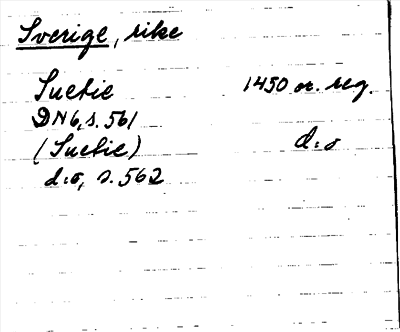 Sverige, rike
Suetie 1450 or. reg.
DN 6, s. 561
(Suetie) d:o
d:o, s. 562